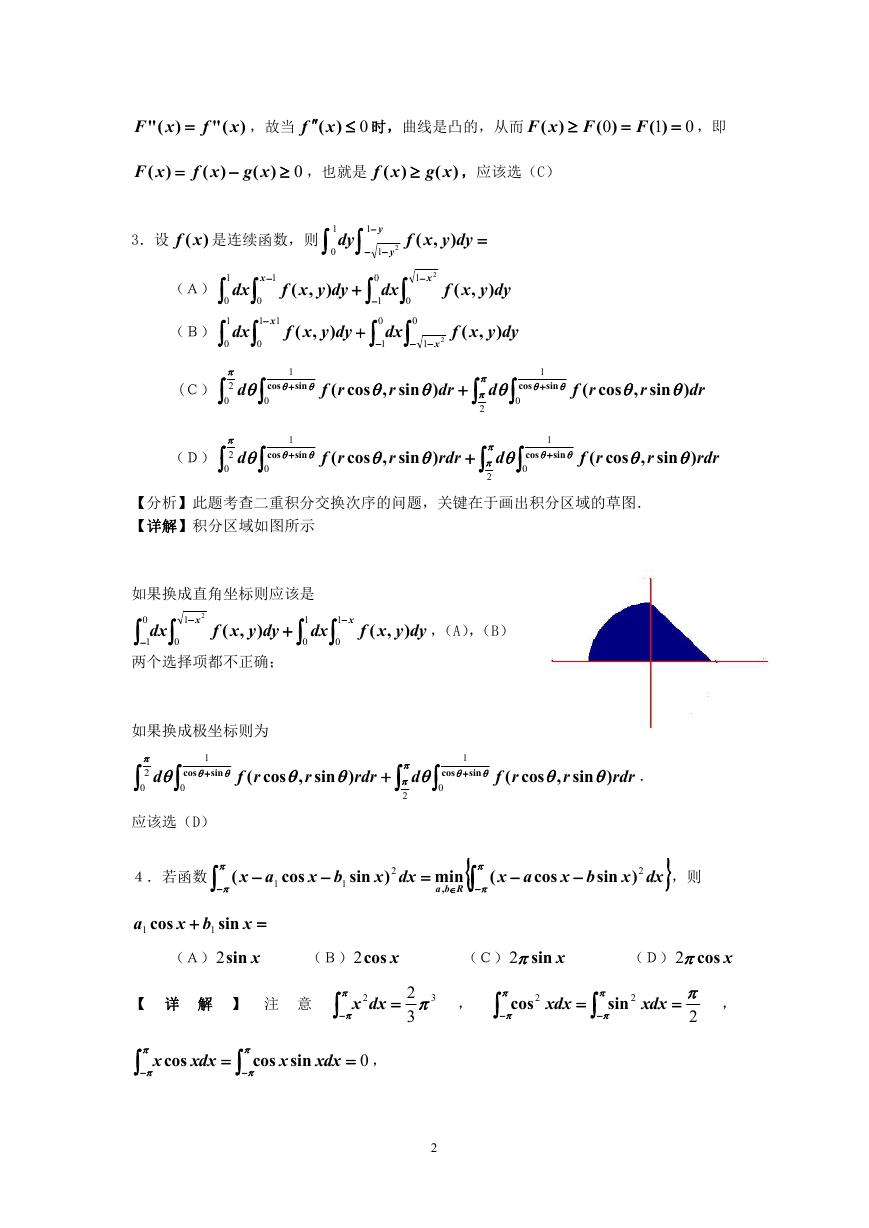 F"(x) = f"(x)，故当 f″(x) ≤ 0 时，曲线是凸的，从而 F(x) ≥ F(0) = F(1) = 0，即
F(x) = f(x) − g(x) ≥ 0，也就是 f(x) ≥ g(x)，应该选（C）
3．设 f(x) 是连续函数，则 ∫_0^1 dy ∫_{−√(1−y²)}^{1−y} f(x, y)dy =
（A）∫_0^1 dx ∫_0^{x−1} f(x, y)dy + ∫_{−1}^0 dx ∫_0^{√(1−x²)} f(x, y)dy
（B）∫_0^1 dx ∫_0^{1−x1} f(x, y)dy + ∫_{−1}^0 dx ∫_{−√(1−x²)}^0 f(x, y)dy
（C）∫_0^{π/2} dθ ∫_0^{1/(cosθ+sinθ)} f(r cosθ, r sinθ)dr + ∫_{π/2}^π dθ ∫_0^{1/(cosθ+sinθ)} f(r cosθ, r sinθ)dr
（D）∫_0^{π/2} dθ ∫_0^{1/(cosθ+sinθ)} f(r cosθ, r sinθ)rdr + ∫_{π/2}^π dθ ∫_0^{1/(cosθ+sinθ)} f(r cosθ, r sinθ)rdr
【分析】此题考查二重积分交换次序的问题，关键在于画出积分区域的草图．
【详解】积分区域如图所示
如果换成直角坐标则应该是
∫_{−1}^0 dx ∫_0^{√(1−x²)} f(x, y)dy + ∫_0^1 dx ∫_0^{1−x} f(x, y)dy，（A），（B）
两个选择项都不正确；
如果换成极坐标则为
∫_0^{π/2} dθ ∫_0^{1/(cosθ+sinθ)} f(r cosθ, r sinθ)rdr + ∫_{π/2}^π dθ ∫_0^{1/(cosθ+sinθ)} f(r cosθ, r sinθ)rdr．
应该选（D）
4．若函数 ∫_{−π}^π (x − a₁ cos x − b₁ sin x)² dx = min_{a,b∈R} {∫_{−π}^π (x − a cos x − b sin x)² dx}，则
a₁ cos x + b₁ sin x =
（A）2 sin x （B）2 cos x （C）2π sin x （D）2π cos x
【 详 解 】 注 意 ∫_{−π}^π x² dx = 2/3 π³ ， ∫_{−π}^π cos² xdx = ∫_{−π}^π sin² xdx = π/2 ，
∫_{−π}^π x cos xdx = ∫_{−π}^π cos x sin xdx = 0，
2